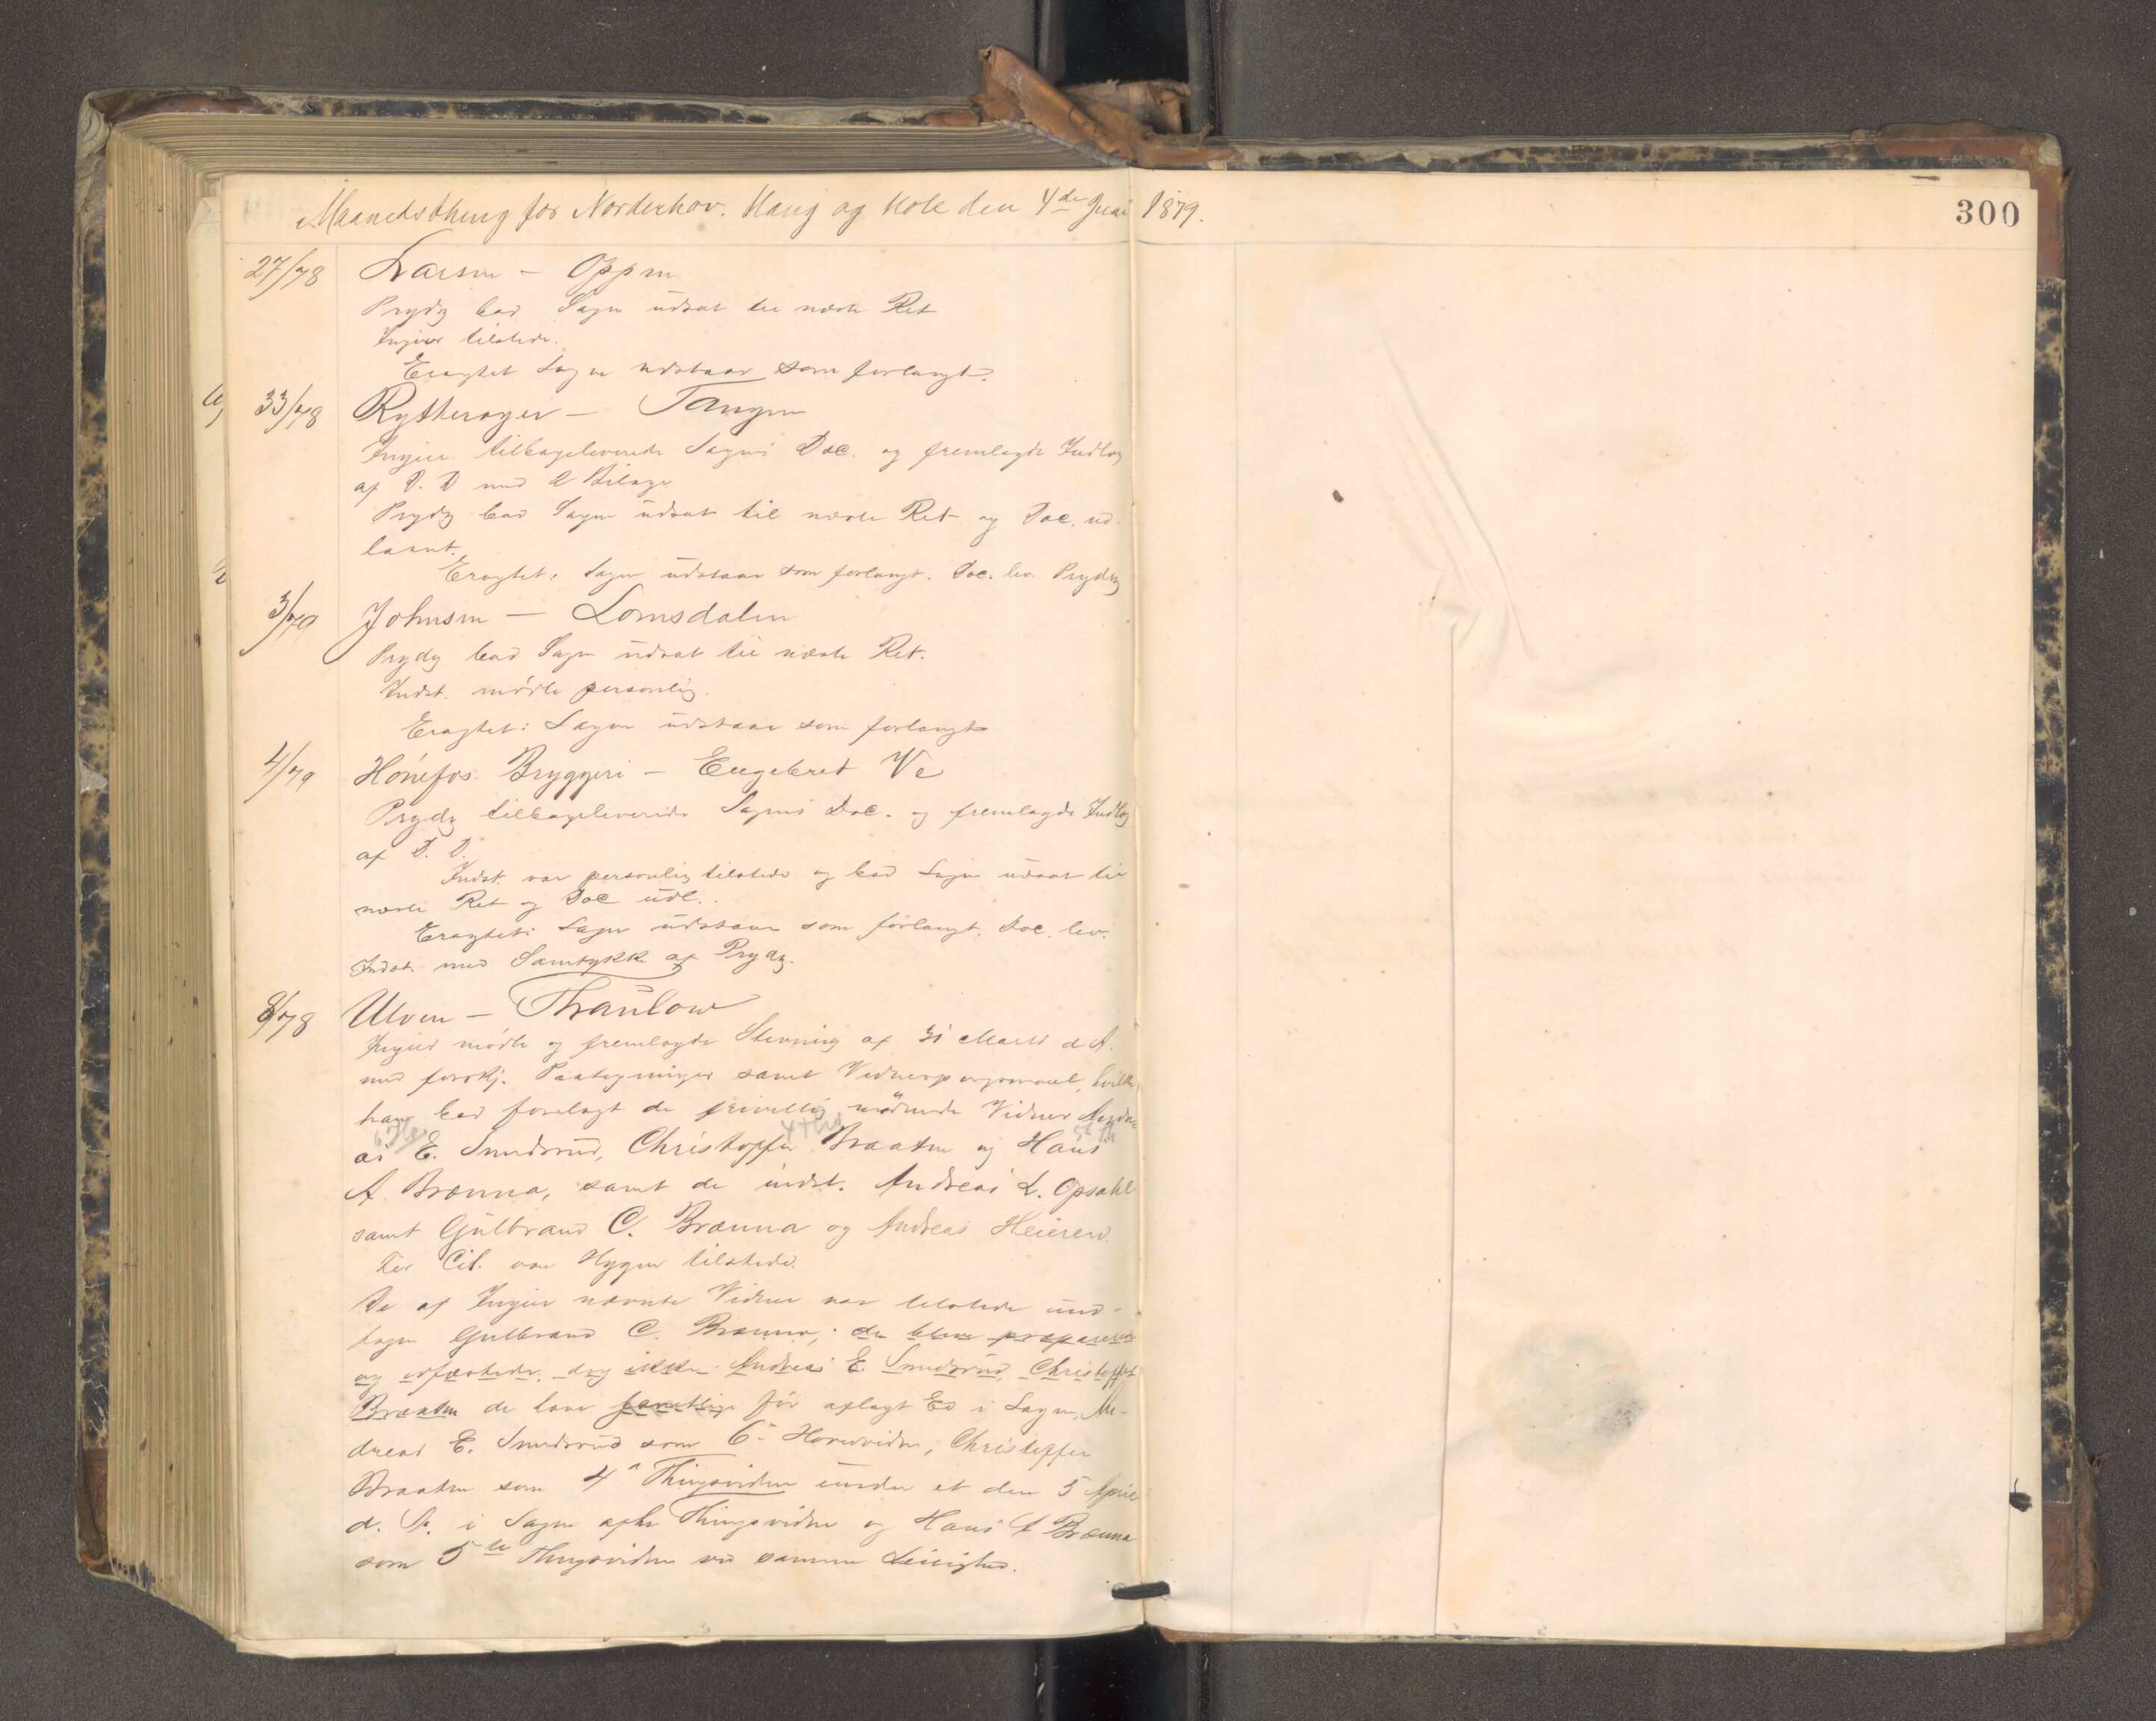 Maanedsthing for Norderhov. Haug og Hole den 4de Juni 1879.
300
27/78 Larsen – Oppen
Prydz bad Sagen udsat til næste Ret
Ingier tilstede.
Eragtet Sagen udstaar som forlangt.
33/78 Rytterager – Tangen
Ingier tilbageleverede Sagens Doc. og fremlagde Indlæg
af D. D med 2 Bilage
Prydz bad Sagen udsat til næste Ret og Doc. ud-
laant.
Eragtet: Sagen udstaar som forlangt. Doc. lev. Prydz
3/79 Johnsen – Lomsdalen
Prydz bad Sagen udsat til næste Ret.
Indst. mødte personlig.
Eragtet: Sagen udstaar som forlangt
4/79 Hønefos Bryggeri – Engebret Ve
Prydz tilbageleverede Sagens Doc. og fremlagde Indlæg
af D. D.
Indst. var personlig tilstede og bad Sagen udsat til
næste Ret og Doc udl.
Eragtet: Sagen udstaar som forlangt. Doc. lev.
Indst. med Samtykke af Prydz.
8/78 Ulven – Thaulow
Ingier mødte og fremlagde Stevning af 31 Marts d A.
med forskj. Paategninger samt Vidnespørgsmaal, hvilke
han bad forelagt de frivillig mødende Vidner Andre-
as E. Smedsrud, Christopher Braaten og Hans
A. Brænna, samt de indst. Andreas L. Opsahl
samt Gulbrand C. Brænna og Andreas Heieren.
For Cit. var Hygen tilstede.
De af Ingier nævnte Vidner var tilstede und-
tagen Gulbrand C. Brænna; de blev præparerede
og edfæstede, dog ikke Andreas E. Smedsrud, Christoffer
Braaten de have samtlige før aflagt Ed i Sagen, An-
dreas E. Smedsrud som 6te Hovedvidne, Christoffer
Braaten som 4de Thingsvidne under et den 5 April
d. A. i Sagen aph Thingsvidne og Hans A Brænna
som 5te Thingsvidne ved samme Leilighed.